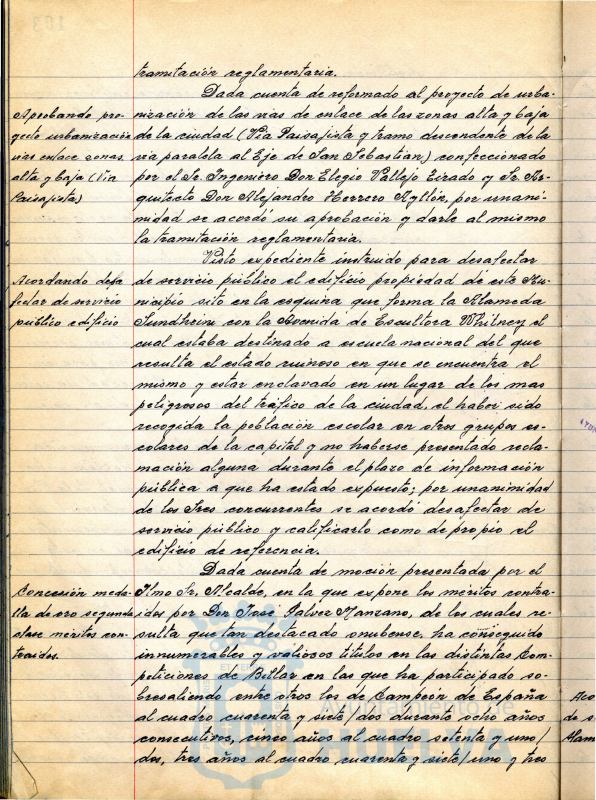 tramitación reglamentaria.
Dada cuenta de reformado al proyecto de urba-
nización de las vias de enlace de las zonas alta y baja
de la ciudad (Vía Paisajista y tramo descendente de la
vía paralela al Eje de San Sebastian) confeccionado
por el Sr. Ingeniero Don Elegio Vallejo Eirado y Sr. Ar-
quitecto Don Alejandro Herrero Ayllón, por unani-
midad se acordó su aprobación y darle al mismo
la tramitación reglamentaria.
Aprobando pro-
yecto urbanización
vias enlace zonas
alta y baja (Vía
Paisajista)
Visto expediente instruido para desafectar
de servicio público el edificio propiedad de este Mu-
nicipio sito en la esquina que forma la Alameda
Sundheim con la Avenida de Escultora Whitney el
cual estaba destinado a escuela nacional del que
resulta el estado ruinoso en que se encuentra el
mismo y estar enclavado en un lugar de los mas
peligrosos del tráfico de la ciudad, el haber sido
recogida la población escolar en otros grupos es-
colares de la capital y no haberse presentado recla-
mación alguna durante el plazo de información
pública a que ha estado expuesto; por unanimidad
de los Sres concurrentes se acordó desafectar de
servicio público y calificarlo como de propio el
edificio de referencia.
Acordando desa-
fectar de servicio
público edificio
Dada cuenta de moción presentada por el
Ilmo Sr. Alcalde, en la que expone los méritos contra-
idos por Don José Galvez Manzano, de los cuales re-
sulta que tan destacado onubense, ha conseguido
innumerables y valiosos titulos en las distintas Com-
peticiones de Billar en las que ha participado so-
bresaliendo entre otros los de Campeón de España
al cuadro cuarenta y siete/dos durante ocho años
consecutivos, cinco años al cuadro setenta y uno/
dos, tres años al cuadro cuarenta y siete/uno y tres
Concesión meda-
lla de oro segunda
clase méritos con-
traidos.
Aco
de s
Alam
Ayuntamiento de
HUELVA